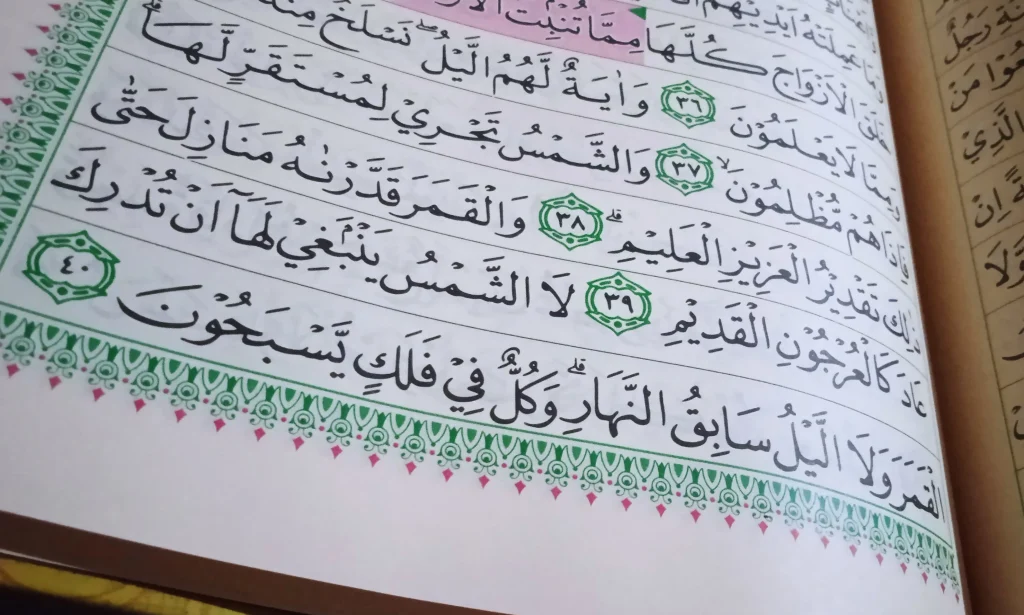 عَمِلَتْهُ اَيْدِيْهِمْ
خَلَقَ الْاَزْوَاجَ كُلَّهَا مِمَّا تُنْۢبِتُ
وَمِمَّا لَا يَعْلَمُوْنَ ٣٦ وَاٰيَةٌ لَّهُمُ الَّيْلُ ۖ نَسْلَخُ
فَاِذَا هُمْ مُّظْلِمُوْنَ ۙ ٣٧ وَالشَّمْسُ تَجْرِيْ لِمُسْتَقَرٍّ لَّهَا ۗ
ذٰلِكَ تَقْدِيْرُ الْعَزِيْزِ الْعَلِيْمِ ۗ ٣٨ وَالْقَمَرَ قَدَّرْنٰهُ مَنَازِلَ حَتّٰى
عَادَ كَالْعُرْجُوْنِ الْقَدِيْمِ ٣٩ لَا الشَّمْسُ يَنْۢبَغِيْ لَهَآ اَنْ تُدْرِكَ
الْقَمَرَ وَلَا الَّيْلُ سَابِقُ النَّهَارِ ۗ وَكُلٌّ فِيْ فَلَكٍ يَّسْبَحُوْنَ ٤٠
رَجُلٌ
مَنْ
الَّذِيْ
اِنْ